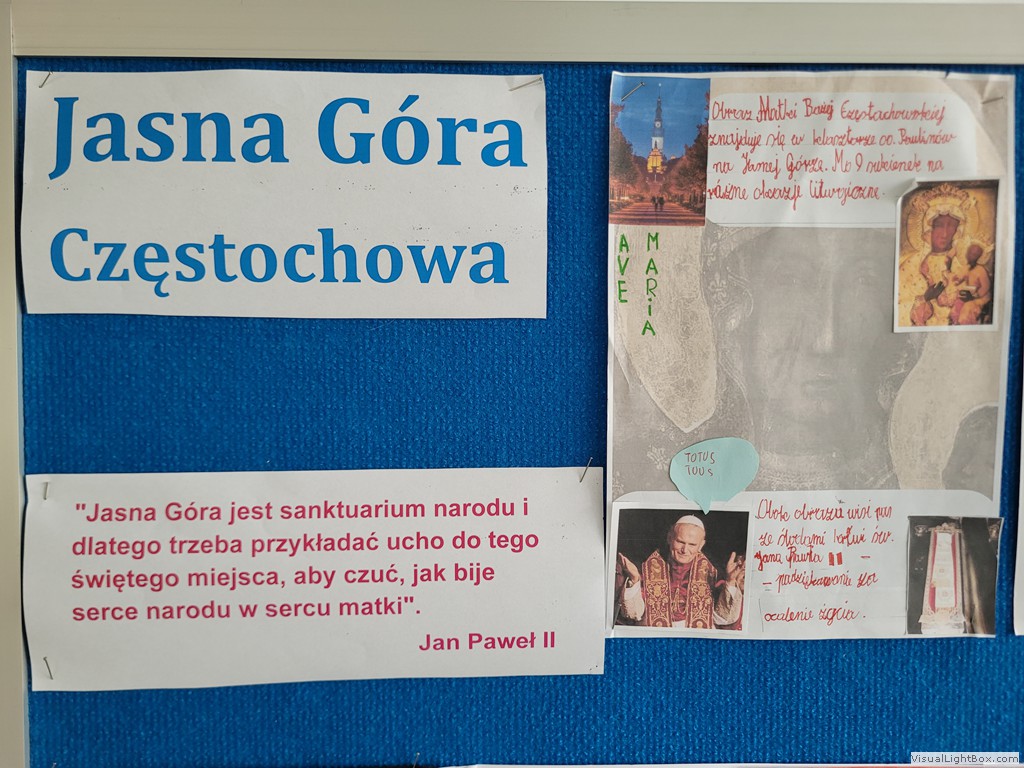 Jasna Góra
Częstochowa
"Jasna Góra jest sanktuarium narodu i
dlatego trzeba przykładać ucho do tego
świętego miejsca, aby czuć, jak bije
serce narodu w sercu matki".
Jan Paweł II
Obraz Matki Bożej Częstochowskiej
znajduje się w klasztorze oo. Paulinów
na Jasnej Górze. Ma 9 sukienek na
różne okazje liturgiczne.
AVE
MARiA
TOTUS
TUUS
Obok obrazu wisi pas
ze śladami krwi św.
Jana Pawła II –
– podziękowanie za
ocalenie życia.
VisualLightBox.com